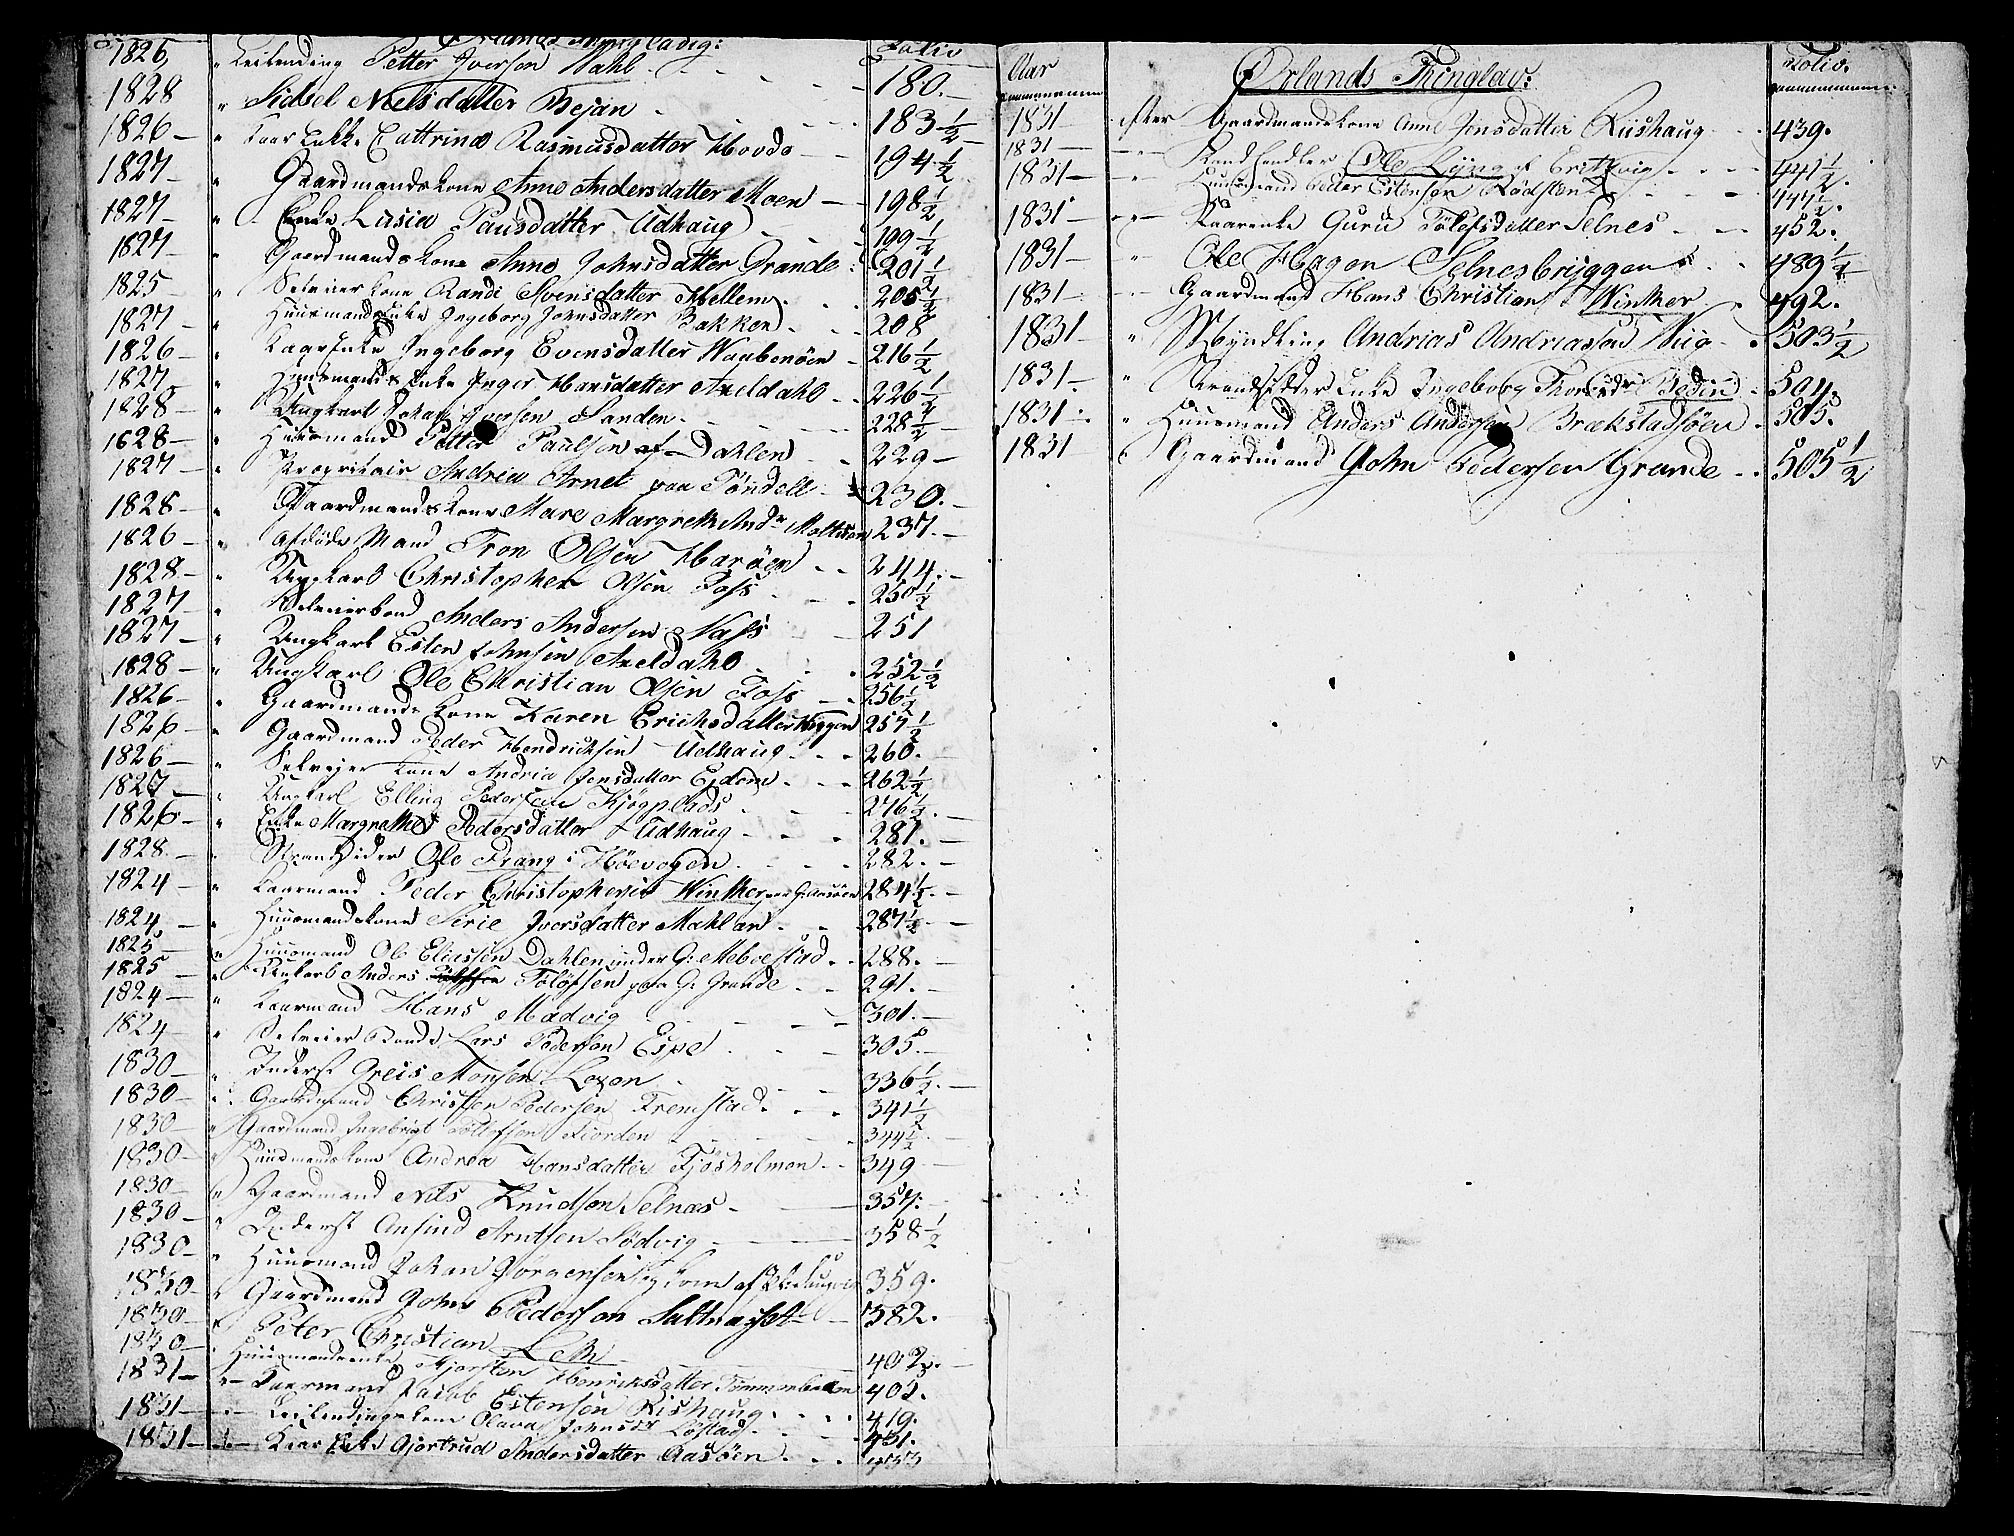 Ørlands Thinglaug: Folio
1826, " Leilending Petter Iversen Wahl 180.
1828 " Sidsel Nielsdatter Bejan 183 1/2
1826 " Kaar Enke Cattrina Rasmusdatter Hovde 194 1/2
1827 " Gaardmandskone Anne Andersdatter Moen 198 1/2
1827 " Enke Lusia Paulsdatter Udhaug 199 1/2
1827 " Gaardmandskone Anne Johnsdatter Grande 201 1/2
1825 " Selveierkone Randi Svensdatter Hellem 205 1/2
1827 " Huusmands Enke Ingeborg Johnsdatter Bakken 208
1826 " Kaar Enke Ingeborg Evensdatter 216 1/2
1827 " Huusmands Enke Inger Hansdatter Axeldahl 226 1/2
1828 " Ungkarl Johan Iversen Sanden 228 1/2
1628 " Huusmand Petter Paulsen af Dahlen 229
1827 " Proprietair Andrea Arnet paa Töndell 230.
1828 " Gaardmandskone Mare Margreth And 237.
1826 " Afdöde Mand Tron Olsen Haröen 244.
1828 " Ungkarl Christopher Olsen Foss 250 1/2
1827 " Selveierbond Anders Andersen Næss 251
1827 " Ungkarl Esten Johnsen Axeldahl 252 1/2
1828 " Ungkarl Ole Christian Olsen Foss 256 1/2
1826 " Gaardmands Kone Karen Erichsdatter Uhggen 257 1/2
1826 " Gaardmand Peder Hendrichsen Udhaug 260.
1826 " Selvejer Kone Andria Jensdatter Ejdem 262 1/2
1827 " Ungkarl Elling Pedersen Kjøgplads 276 1/2
1826 " Enke Margrethe Pedersdatter Udhaug 281.
1828 " Strandsider Ole Prang i Höevogen 282.
1824 " Kaarmand Peder Christophersen Winther 284 1/2
1824, " Huusmandskone Sirie Iversdatter Mahlan 287 1/2
1825 " Huusmand Ole Eliassen Dahlen under G: Mebostad 288.
1825 " Ungkarl Anders Tölöfsen paa G: Grande 291.
1824 " Kaarmand Hans Madvig 301.
1824 " Selveier Bonde Lars Pedersen Espe 305.
1830 " Inderst Greis Monsen Lexen 336 1/2
1830 " Gaardmand Christen Pedersen Fremstad 341 1/2
1830 " Gaardmand Ingebrigt Tollefsen Fiorden 344 1/2
1830 " Huusmandskone Andrea Hansdatter Fjösholmen 349
1830 " Gaardmand Nils Knudsen Selnæs 357.
1830 " Inderst Anfind Arntsen Södvig 358 1/2
1830 " Huusmand Johan Jörgensen 359.
1830 " Gaardmand John Pedersen 382.
1830 " Peter Christian Leth 402.
1830 " Huusmandsenke Kjersten Henriksdatter 402.
1831 " Kaarmand Jacob Estensen Rishaug 419.
1831 " Leilendingskone Olava Johnsdr Löstad 431.
1831 " Kaar Enke Gjertrud Andersdatter Aasöen 433
Aar Ørlands Thinglav: Folio.
1831 efter Gaardmandskone Anne Jensdatter Riishaug 439.
1831 " Landhandler Ole Lyng af Britkvig 441 1/2
1831 " Huusmand Peter Estensen Rödsten 447 1/2.
1831 " Kaarenke Guru Tölefsdatter Selnes 452.
1831 " Ole Hagen Selnesbryggen 489 1/2
1831 " Gaardmand Hans Christian Winther 492.
1831 " Myndling Andrias Andriasen Viig 503 1/2
1831 " Strandsidder Enke Ingeborg Thoresdr Bedin 504.
1831 " Huusmand Anders Andersen Brækstadsöen 505.
1831 " Gaardmand John Pedersen Grande 505 1/2